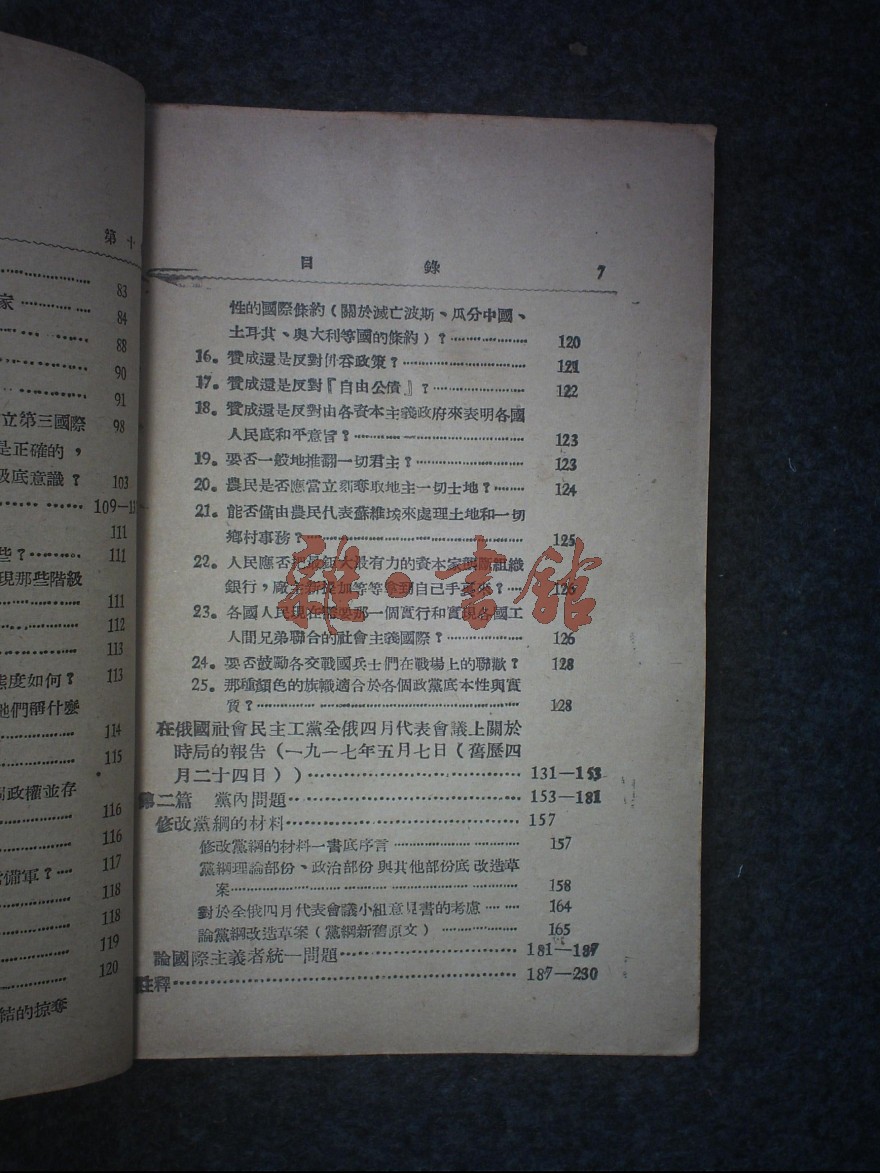 第十
83
家 84
88
90
91
立第三國際 98
是正確的，
級底意識？ 103
109—1
111
些？ 111
現那些階級
111
112
113
態度如何？ 113
他們稱什麼
114
115
政權並存
116
116
常備軍？ 117
118
118
119
120
結的掠奪
目錄 7
性的國際條約（關於滅亡波斯、瓜分中國、
土耳其、奥大利等國的條約）？ 120
16。贊成還是反對併吞政策？ 121
17。贊成還是反對『自由公債』？ 122
18。贊成還是反對由各資本主義政府來表明各國
人民底和平意旨？ 123
19。要否一般地推翻一切君主？ 123
20。農民是否應當立刻奪取地主一切土地？ 124
21。能否僅由農民代表蘇維埃來處理土地和一切
鄉村事務？ 125
22。人民應否把最鉅大最有力的資本家壟斷組織
銀行，廠主新提加等等拿到自己手裏來？ 126
23。各國人民現在需要那一個實行和實現各國工
人間兄弟聯合的社會主義國際？ 126
24。要否鼓勵各交戰國兵士們在戰場上的聯歡？ 128
25。那種顏色的旗幟適合於各個政黨底本性與實
質？ 128
在俄國社會民主工黨全俄四月代表會議上關於
時局的報告（一九一七年五月七日（舊歷四
月二十四日）） 131—153
第二篇 黨內問題 153—181
修改黨綱的材料 157
修改黨綱的材料一書底序言 157
黨綱理論部份、政治部份與其他部份底改造草
案 158
對於全俄四月代表會議小組意見書的考慮 164
論黨綱改造草案（黨綱新舊原文） 165
論國際主義者統一問題 181—187
註釋 187—230
雜·書館